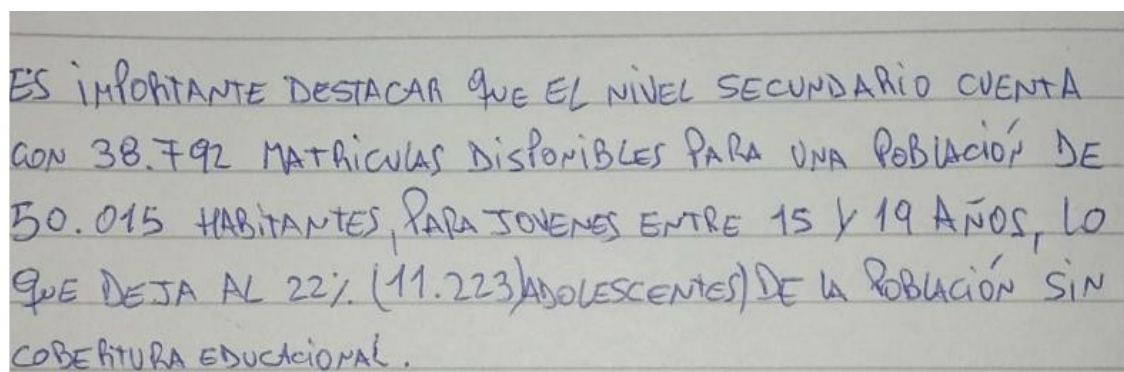 ES IMPORTANTE DESTACAR QUE EL NIVEL SECUNDARIO CUENTA
CON 38.792 MATRICULAS DISPONIBLES PARA UNA POBLACIÓN DE
50.015 HABITANTES, PARA JOVENES ENTRE 15 Y 19 AÑOS, LO
QUE DEJA AL 22% (11.223)ADOLESCENTES) DE LA POBLACIÓN SIN
COBERTURA EDUCACIONAL.